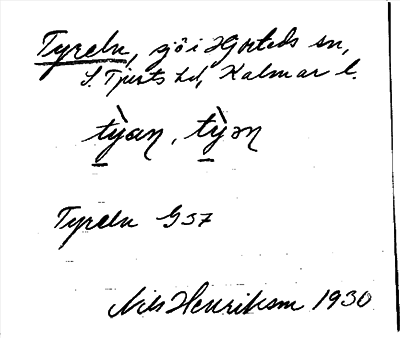 Tyreln, sjö i Hjorteds sn,
S. Tjusts hd, Kalmar l.
tỳan, tỳən
Tyreln G 37
Nils Henrikson 1930